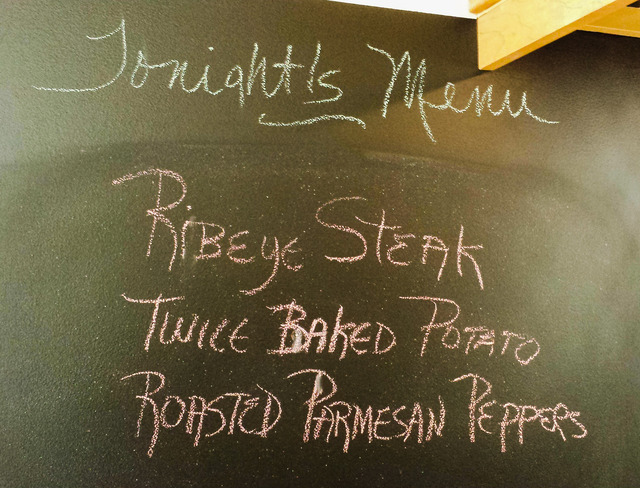 Tonight's Menu
Ribeye Steak
Twice Baked Potato
Roasted Parmesan Peppers